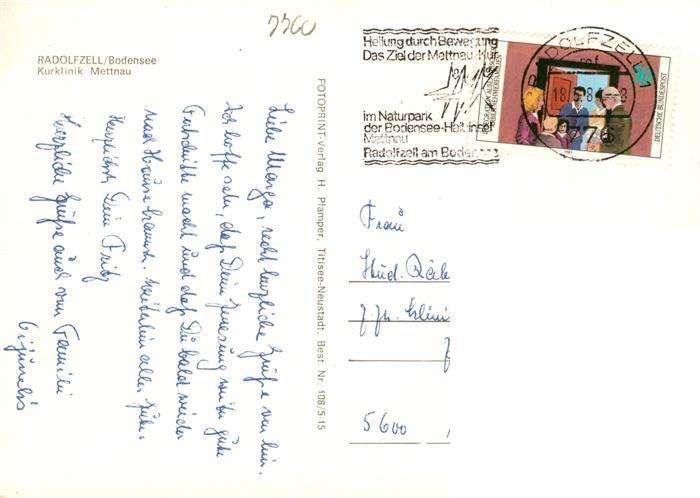 7760
RADOLFZELL/Bodensee
Kurklinik Mettnau
Liebe Marga, recht herzliche Grüße von hier.
Ich hoffe sehr, daß Deine Genesung weiter gute
Fortschritte macht und daß Du bald wieder
nach Hause kannst. Weiterhin alles Gute.
Herzlichst Dein Fritz
Herzliche Grüße auch von Familie
FOTOPRINT-Verlag H. Plamper, Titisee-Neustadt: Best. Nr. 108/5-15
Heilung durch Bewegung
Das Ziel der Mettnau-Kur
im Naturpark
der Bodensee-Halbinsel
Mettnau
Radolfzell am Boden
RADOLFZELL
776
DEUTSCHE BUNDESPOST
Frau
Stud. Rätin
5600